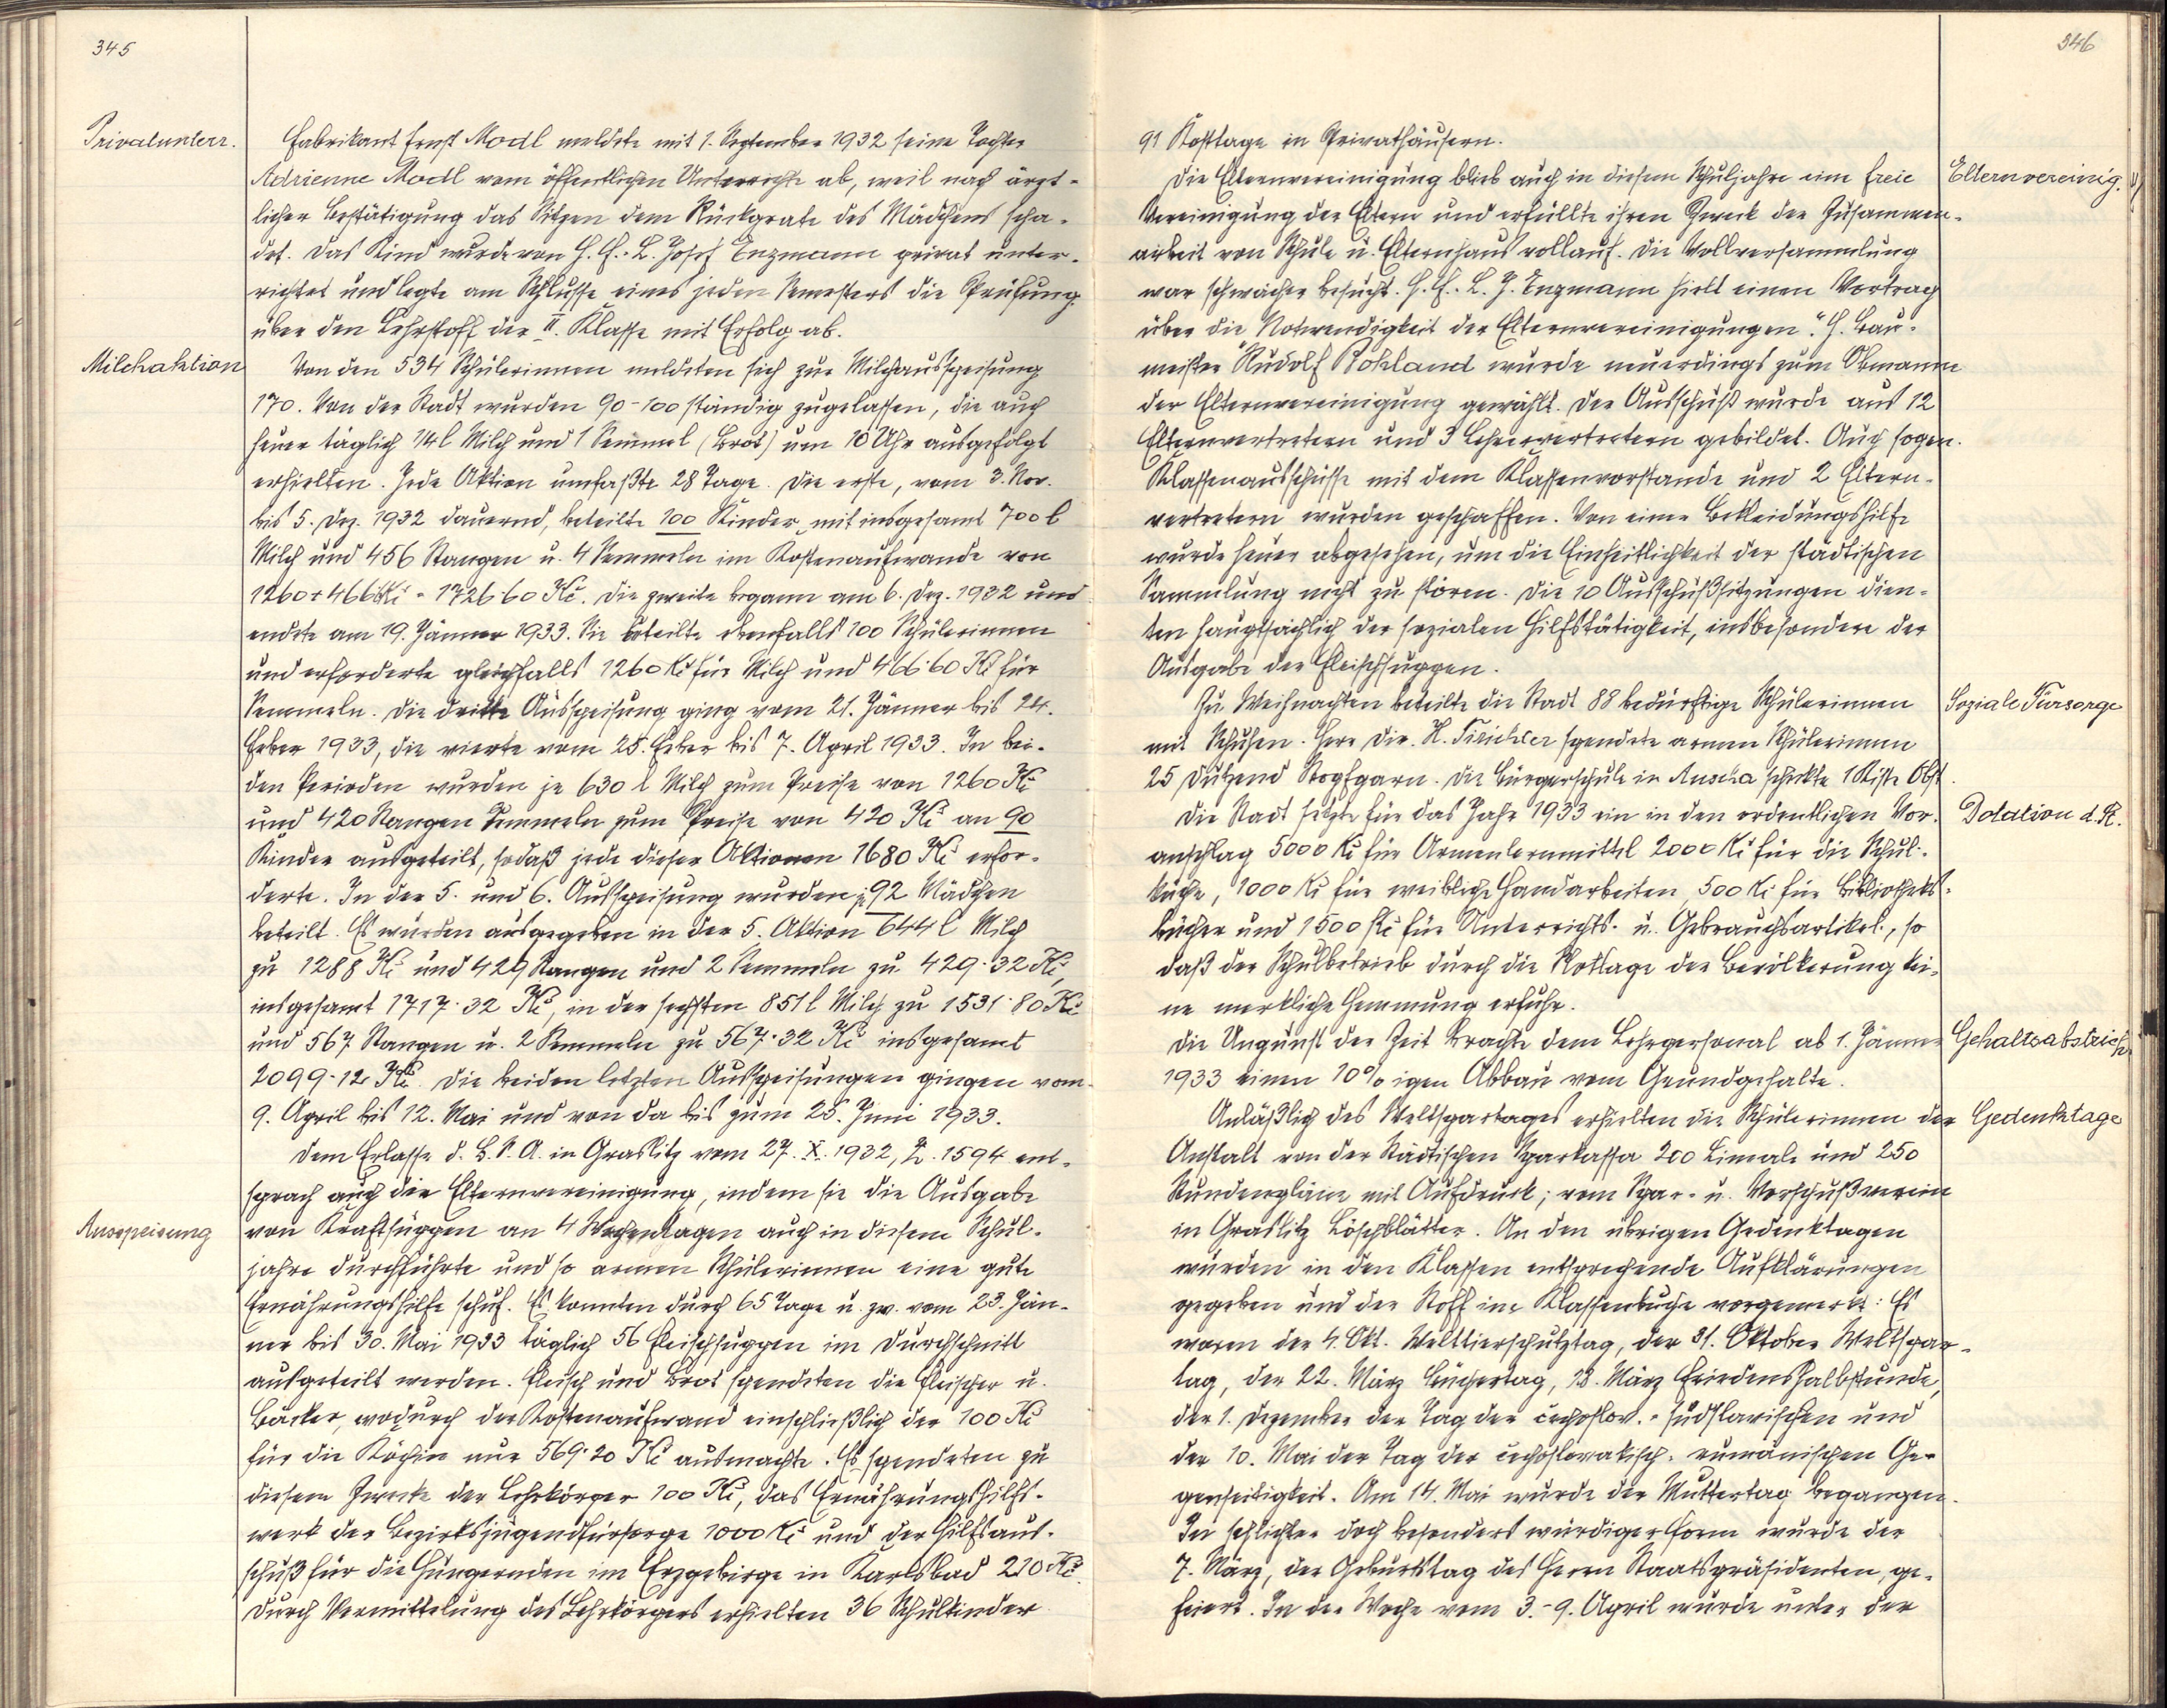 345
Privatunterr.
Fabrikant Ernst Modl meldete mit 1. September 1932 seine Tochter
Adrienne Modl vom öffentlichen Unterrichte ab, weil nach ärzt-
licher Bestätigung das Sitzen dem Rückgrate des Mädchens scha-
det. Das Kind wurde von H. F.-L. Josef Enzmann privat unter-
richtet und legte am Schlusse eines jeden Semesters die Prüfung
über den Lehrstoff der II. Klasse mit Erfolg ab.
Milchaktion
Von den 534 Schülerinnen meldeten sich zur Milchausspeisung
170. Von der Stadt wurden 90-100 ständig zugelassen, die auch
heuer täglich 1/4 l Milch und 1 Semmel (Brot) um 10 Uhr ausgefolgt
erhielten. Jede Aktion umfaßte 28 Tage. Die erste, vom 3. Nov.
bis 5. Dez. 1932 dauernd, beteilte 100 Kinder mit insgesamt 700 l
Milch und 456 Stangen u. 4 Semmeln im Kostenaufwande von
1260 + 466 Kč = 1726·60 Kč. Die zweite begann am 6. Dez. 1932 und
endete am 19. Jänner 1933. Sie beteilte ebenfalls 100 Schülerinnen
und erforderte gleichfalls 1260 Kč für Milch und 466·60 Kč für
Semmeln. Die dritte Ausspeisung ging vom 21. Jänner bis 24.
Feber 1933, die vierte vom 25. Feber bis 7. April 1933. In bei-
den Perioden wurden je 630 l Milch zum Preise von 1260 Kč
und 420 Stangen Semmeln zum Preise von 420 Kč an 90
Kinder ausgeteilt, sodaß jede dieser Aktionen 1680 Kč erfor-
derte. In der 5. und 6. Ausspeisung wurden je 92 Mädchen
beteilt. Es wurden ausgegeben in der 5. Aktion 644 l Milch
zu 1288 Kč und 429 Stangen und 2 Semmeln zu 429·32 Kč,
insgesamt 1717·32 Kč, in der sechsten 851 l Milch zu 1531·80 Kč
und 567 Stangen u. 2 Semmeln zu 567·32 Kč insgesamt
2099·12 Kč. Die beiden letzten Ausspeisungen gingen vom
9. April bis 12. Mai und von da bis zum 25. Juni 1933.
Dem Erlasse d. B. S. A. in Graslitz vom 27. X. 1932, Z. 1594 ent-
sprach auch die Elternvereinigung, indem sie die Ausgabe
Ausspeisung
von Kraftsuppen an 4 Wochentagen auch in diesem Schul-
jahre durchführte und so armen Schülerinnen eine gute
Ernährungshilfe schuf. Es konnten durch 65 Tage u. zw. vom 23. Jän-
ner bis 30. Mai 1933 täglich 56 Fleischsuppen im Durchschnitt
ausgeteilt werden. Fleisch und Brot spendeten die Fleischer u.
Bäcker, wodurch der Kostenaufwand einschließlich der 100 Kč
für die Köchin nur 569·20 Kč ausmachte. Es spendeten zu
diesem Zwecke der Lehrkörper 100 Kč, das Ernährungshilfs-
werk der Bezirksjugendfürsorge 1000 Kč und der Hilfsaus-
schuß für die Hungernden im Erzgebirge in Karlsbad 210 Kč.
Durch Vermittelung des Lehrkörpers erhielten 36 Schulkinder
346
91 Kosttage in Privathäusern.
Elternvereinig.
Die Elternvereinigung blieb auch in diesem Schuljahre eine freie
Vereinigung der Eltern und erfüllte ihren Zweck der Zusammen-
arbeit von Schule u. Elternhaus vollauf. Die Vollversammlung
war schwächer besucht. H. F.-L. J. Enzmann hielt einen Vortrag
über die „Notwendigkeit der Elternvereinigungen“. H. Bau-
meister Rudolf Rohland wurde neuerdings zum Obmann
der Elternvereinigung gewählt. Der Ausschuß wurde aus 12
Elternvertretern und 3 Lehrervertretern gebildet. Auch sogen.
Klassenausschüsse mit dem Klassenvorstande und 2 Eltern-
vertretern wurden geschaffen. Von einer Bekleidungshilfe
wurde heuer abgesehen, um die Einheitlichkeit der städtischen
Sammlung nicht zu stören. Die 10 Ausschußsitzungen dien-
ten hauptsächlich der sozialen Hilfstätigkeit, insbesondere der
Ausgabe der Fleischsuppen.
Soziale Fürsorge
Zu Weihnachten beteilte die Stadt 88 bedürftige Schülerinnen
mit Schuhen. Herr Dir. H. spendete armen Schülerinnen
25 Dutzend Stopfgarn. Die Bürgerschule in Auscha schickte 1 Kiste Obst.
Dotation d. St.
Die Stadt setzte für das Jahr 1933 ein in den ordentlichen Vor-
anschlag 5000 Kč für Armenlernmittel 2000 Kč für die Schul-
küche, 1000 Kč für weibliche Handarbeiten, 500 Kč für Bibliotheks-
bücher und 1500 Kč für Unterrichts- u. Gebrauchsartikel, so
daß der Schulbetrieb durch die Notlage der Bevölkerung kei-
ne merkliche Hemmung erfuhr.
Gehaltsabstriche
Die Ungunst der Zeit brachte dem Lehrpersonal ab 1. Jänner
1933 einen 10%igen Abbau vom Grundgehalte.
Gedenktage
Anläßlich des Weltspartages erhielten die Schülerinnen der
Anstalt von der Städtischen Sparkassa 200 Lineale und 250
Stundenpläne mit Aufdruck; vom Spar- u. Vorschußverein
in Graslitz Löschblätter. An den übrigen Gedenktagen
wurden in den Klassen entsprechende Aufklärungen
gegeben und der Stoff im Klassenbuche vorgemerkt: Es
waren der 4. Okt. Welttierschutztag, der 31. Oktober Weltspar-
tag, der 22. März Büchertag, 18. März Friedenshalbstunde,
der 1. Dezember der Tag der čechoslov.-südslavischen und
der 10. Mai der Tag der čechoslovakisch-rumänischen Ge-
genseitigkeit. Am 14. Mai wurde der Muttertag begangen.
In schlichter doch besonders würdiger Form wurde der
7. März, der Geburtstag des Herrn Staatspräsidenten, ge-
feiert. In der Woche vom 3.-9. April wurde unter der